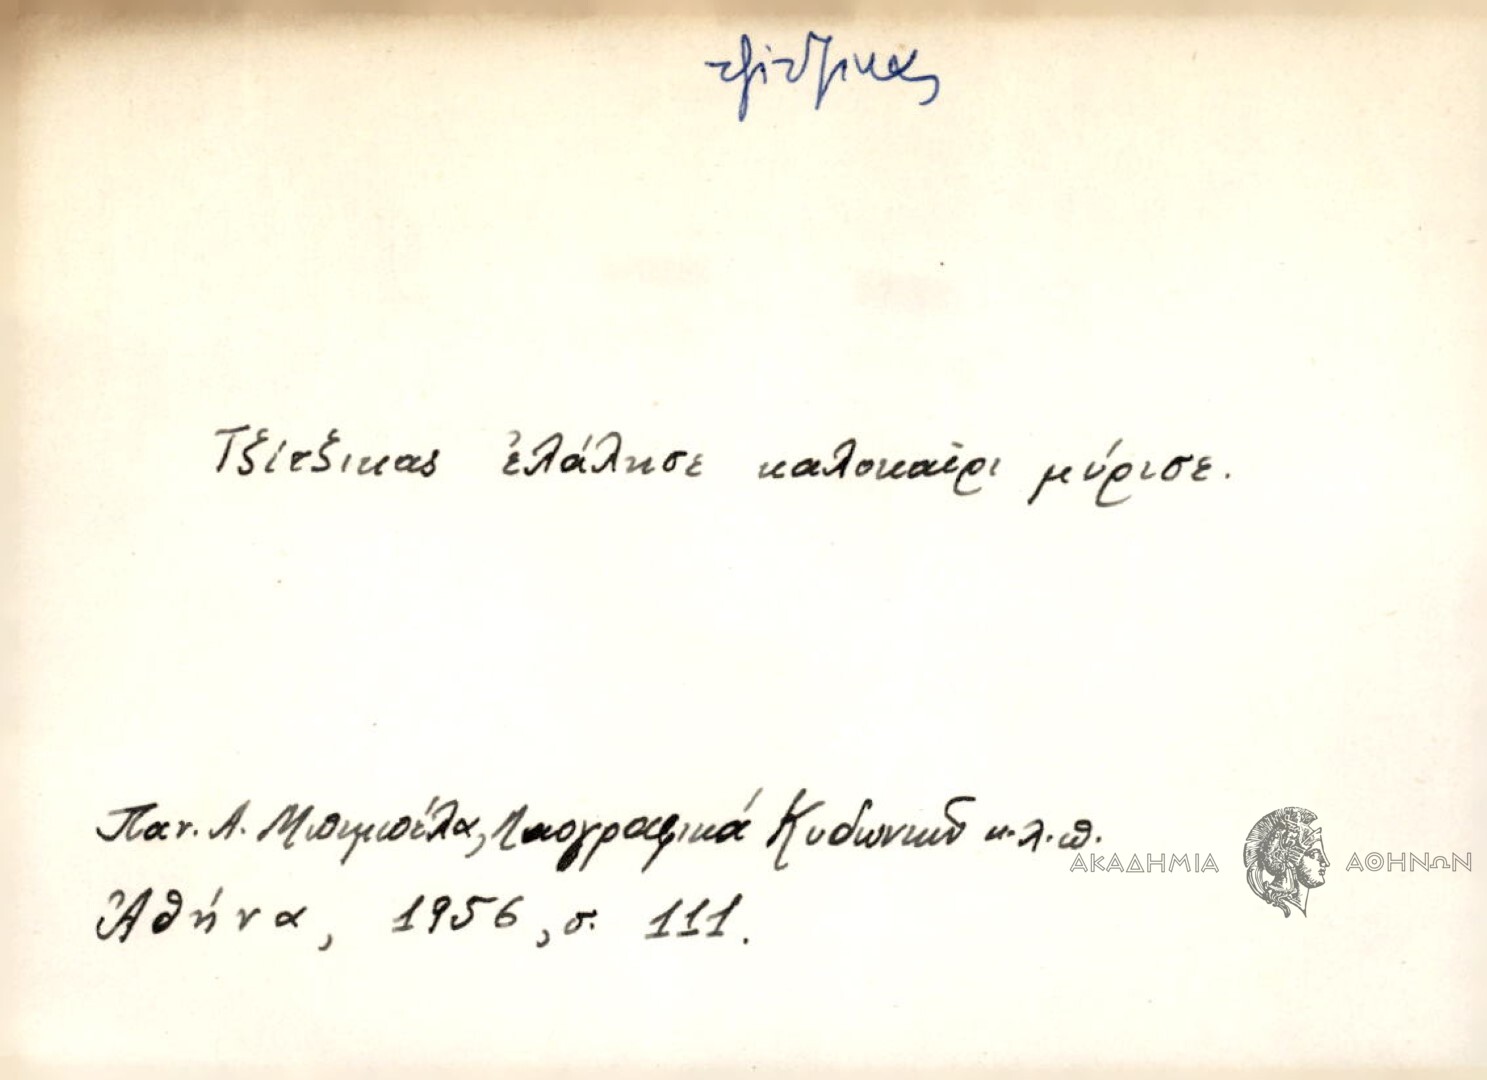 τζίτζικας
Τζίτζικας ἐλάλησε καλοκαίρι μύρισε.
Παν. Λ. Μπιμπέλα, Λαογραφικά Κυδωνιῶν κ.λ.π.
Ἀθήνα, 1956, σ. 111.
ΑΚΑΔΗΜΙΑ ΑΘΗΝΩΝ